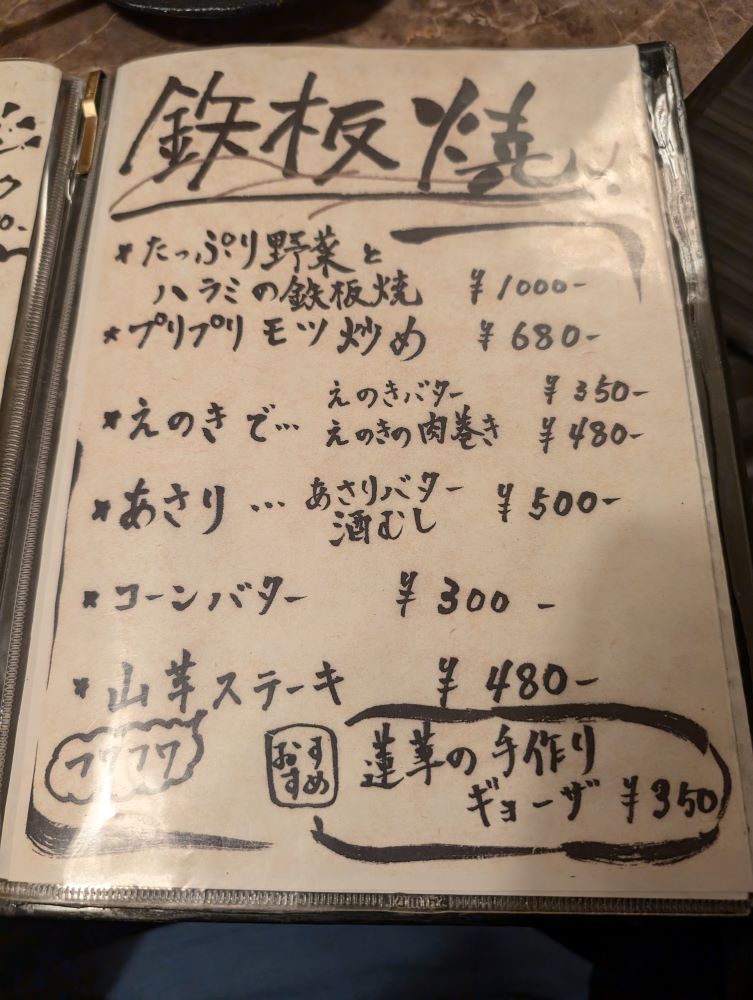 鉄板焼!
*たっぷり野菜と
ハラミの鉄板焼 ¥1000-
*プリプリモツ炒め ¥680-
*えのきで… えのきバター ¥350-
えのきの肉巻き ¥480-
*あさり … あさりバター ¥500-
酒むし
*コーンバター ¥300-
*山芋ステーキ ¥480-
フワフワ
おすすめ
蓮草の手作り
ギョーザ ¥350